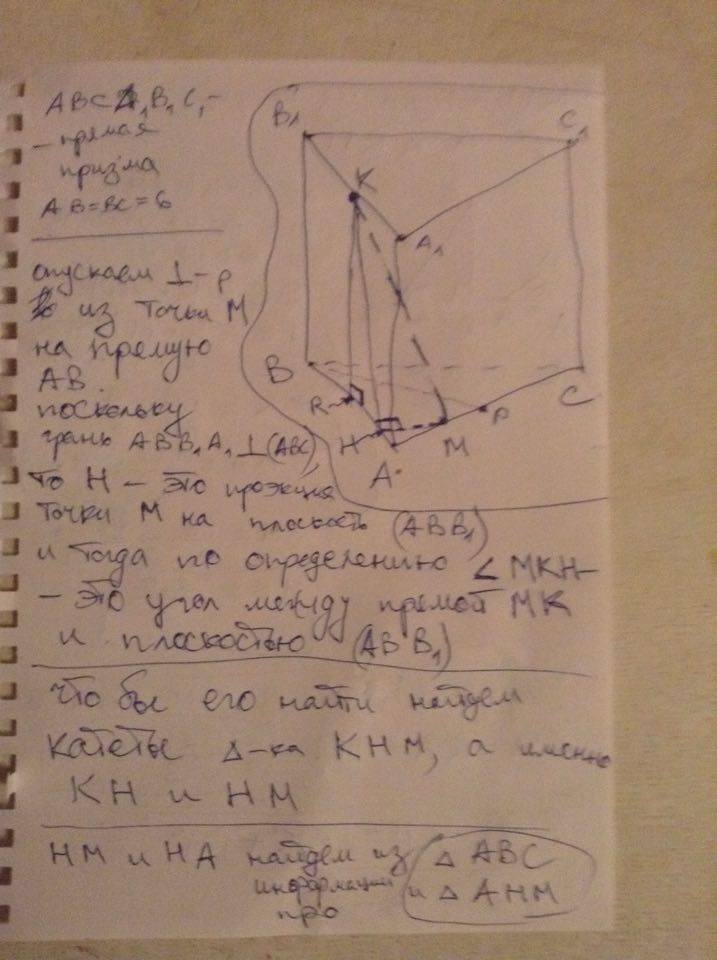 ABCA₁B₁C₁ –
– прямая
призма
AB=BC=6
опускаем ⊥-р
из точки M
на прямую
AB.
поскольку
грань ABB₁A₁⊥(ABC)
то H – это проэкция
точки M на плоскость (ABB₁)
и тогда по определению ∠MKH –
– это угол между прямой MK
и плоскостью (ABB₁)
что бы его найти найдем
катеты Δ-ка KHM, а именно
KH и HM
HM и HA найдем из Δ ABC
информации и Δ AHM
про
B₁
C₁
K
A₁
B
C
R
P
H
M
A